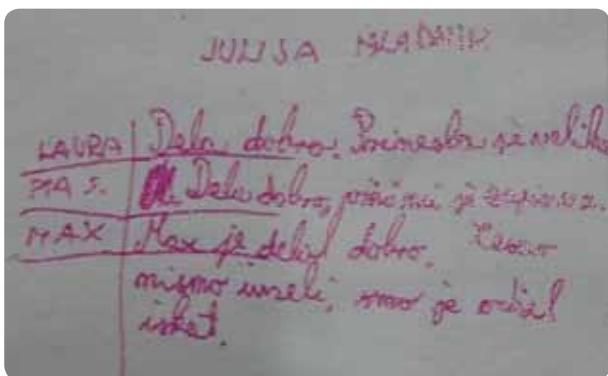 JULIJA MLADINIK
LAURA Dela dobro. Prinesla je veliko
PIA S. Dela dobro, je
MAX Max je delal dobro. Česar
nismo imeli, smo je odšel
iskat.